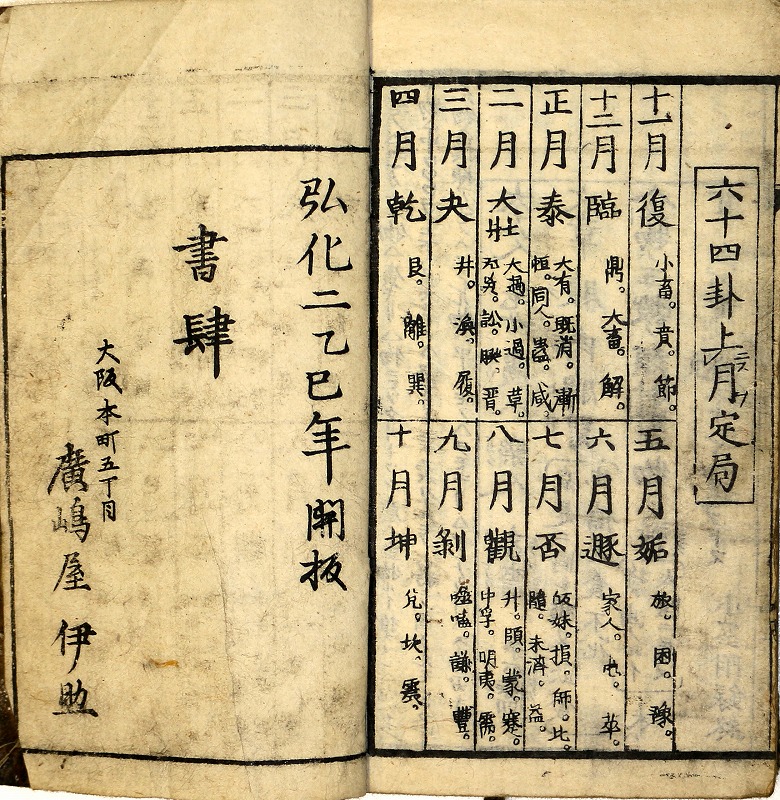 六十四卦上月定局
十一月 復 小畜。賁。節。
十二月 臨 鼎。大畜。解。
正月 泰 大有。既消。漸
恒。同人。蠱。咸。
二月 大壯 大過。小過。草。
无妄。訟。睽。晋。
三月 夬 井。渙。履。
四月 乾 艮。離。巽。
五月 姤 旅。困。豫。
六月 遯 家人。屯。萃。
七月 否 皈妹。損。師。比。
隨。未濟。益。
八月 觀 升。頤。蒙。蹇。
中孚。明夷。需。
九月 剝 噬嗑。謙。豐。
十月 坤 兌。坎。震。
弘化二乙巳年開板
書肆
大阪本町五丁目
廣嶋屋伊助